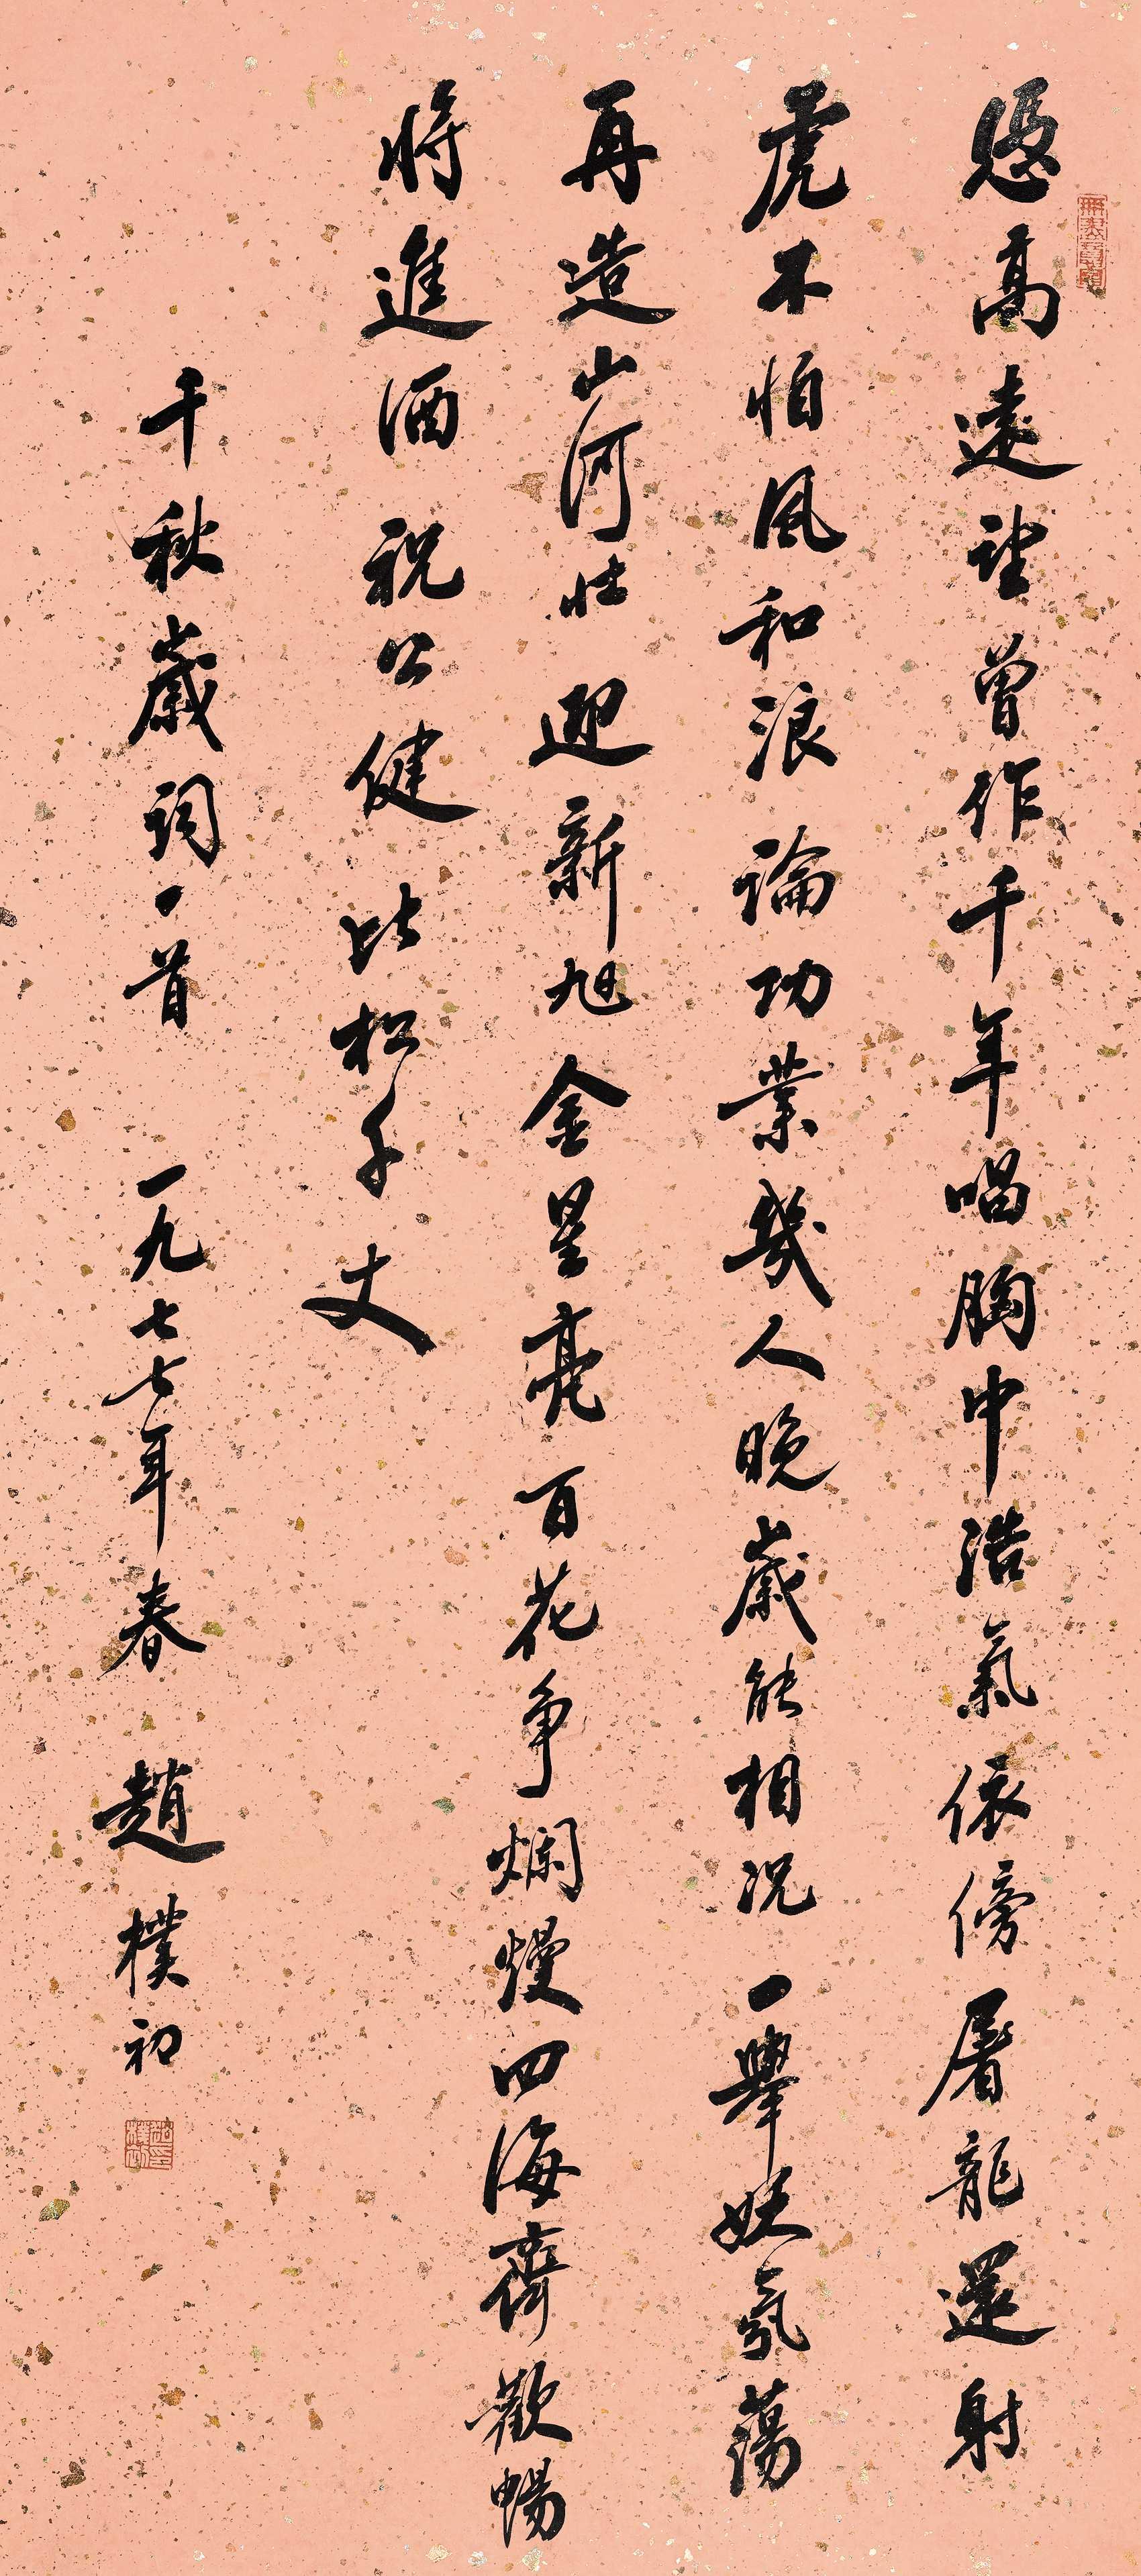 憑高遠望曾作千年唱胸中浩氣依傍屠龍還射
虎不怕風和浪論功業幾人晚歲能相況一舉妖氛蕩
再造山河壯迎新旭金星亮百花爭爛熳四海齊歡暢
將進酒祝公健比松千丈
千秋歲詞一首一九七七年春趙樸初
趙樸初印